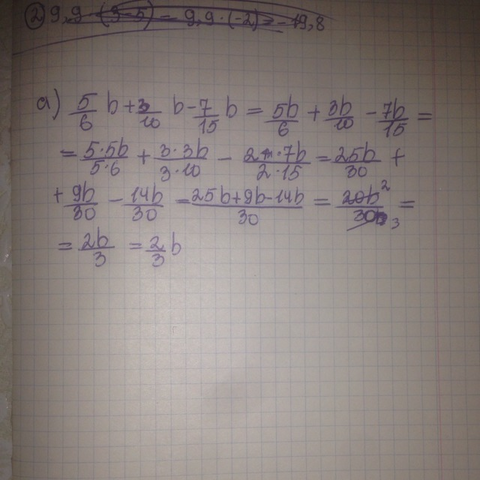 ② 9,9 · (3-5) = 9,9 · (-2) = -19,8
а) 5/6 b + 3/10 b - 7/15 b = 5b/6 + 3b/10 - 7b/15 =
= 5·5b/5·6 + 3·3b/3·10 - 2·7b/2·15 = 25b/30 +
+ 9b/30 - 14b/30 = 25b+9b-14b/30 = 20b 2/30 3 =
= 2b/3 = 2/3 b